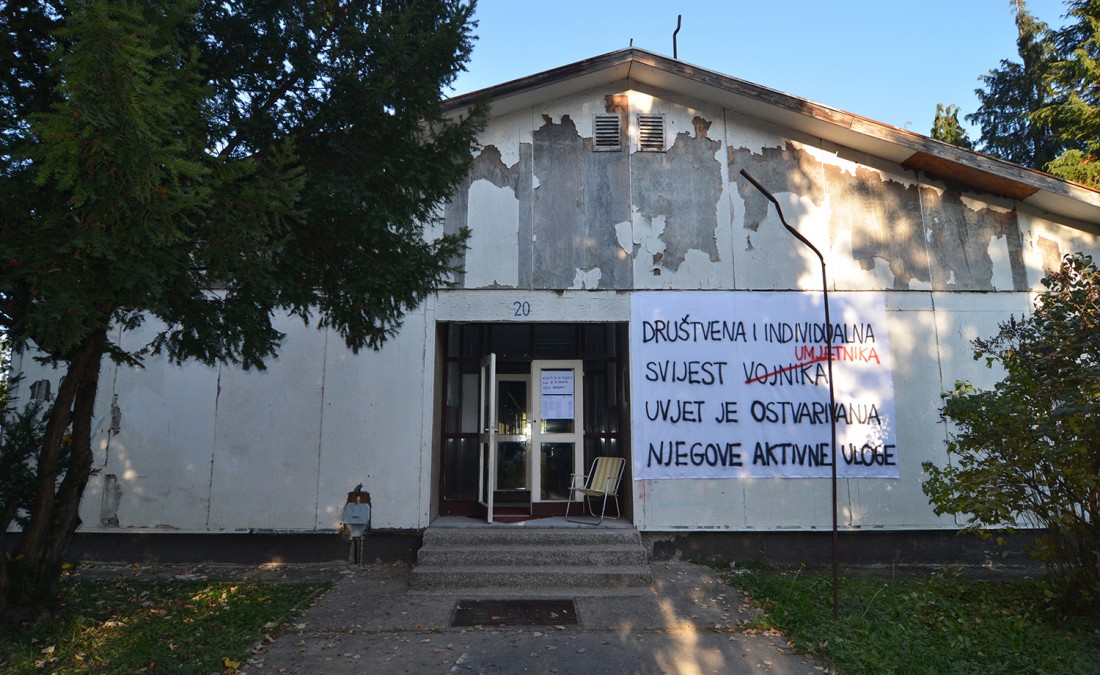 20
DRUŠTVENA I INDIVIDUALNA
UMJETNIKA
SVIJEST VOJNIKA
UVJET JE OSTVARIVANJA
NJEGOVE AKTIVNE ULOGE